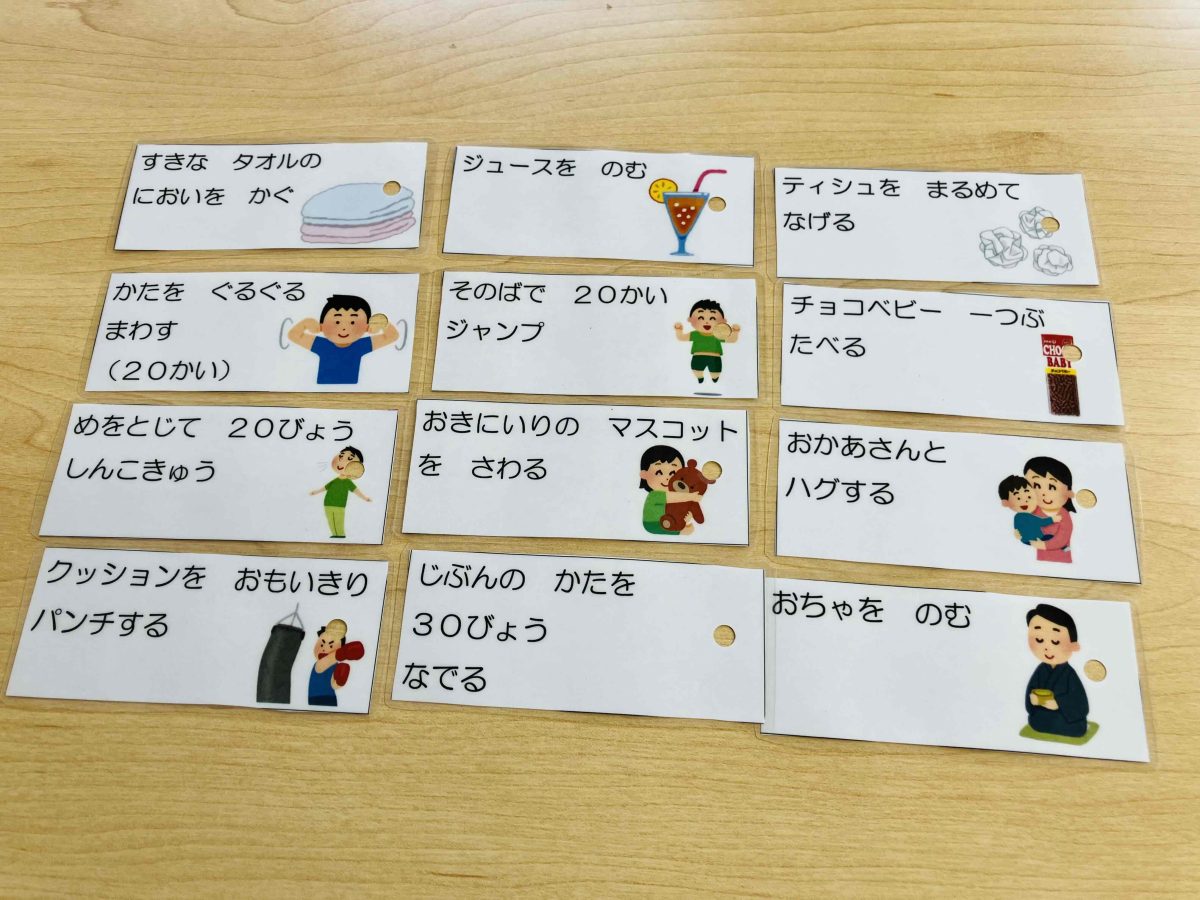 すきな　タオルの
においを　かぐ
ジュースを　のむ
ティシュを　まるめて
なげる
かたを　ぐるぐる
まわす
（２０かい）
そのばで　２０かい
ジャンプ
チョコベビー　一つぶ
たべる
CHOCO
BABY
めをとじて　２０びょう
しんこきゅう
おきにいりの　マスコット
を　さわる
おかあさんと
ハグする
クッションを　おもいきり
パンチする
じぶんの　かたを
３０びょう
なでる
おちゃを　のむ